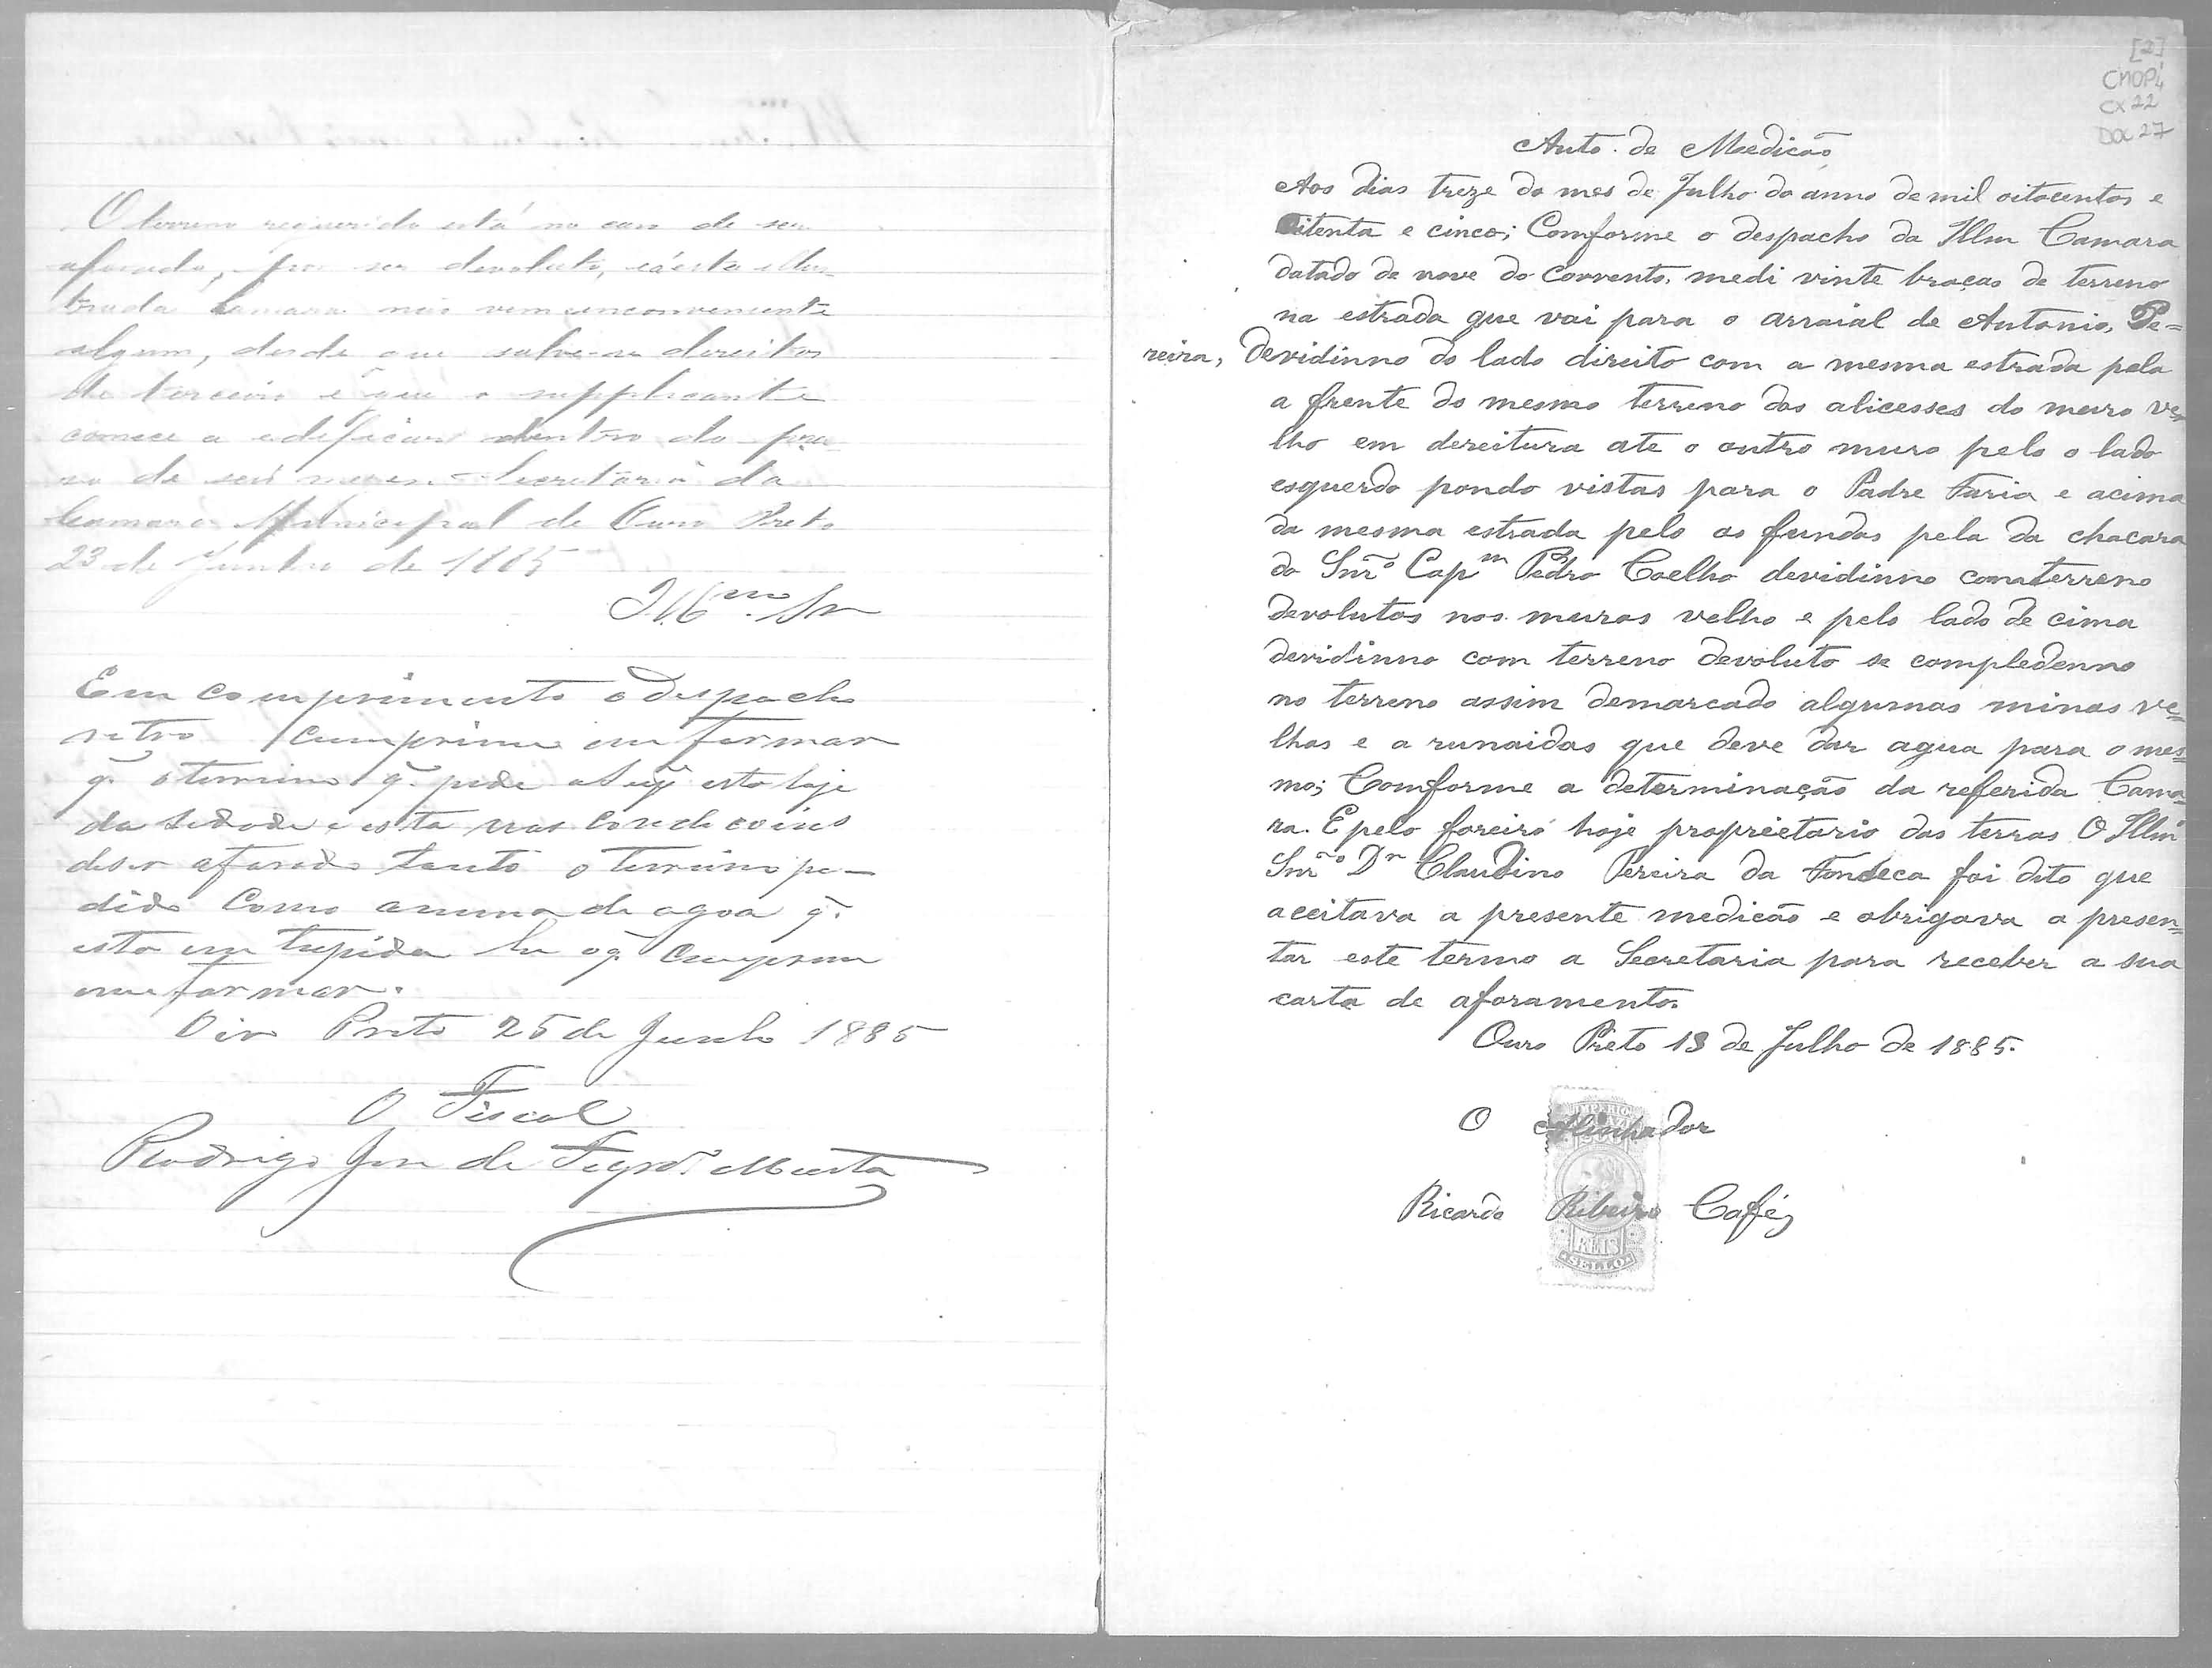 O terreno requerido está no caso de ser
aforado, por ser devoluto, e a esta Illus-
trada Camara não vem inconveniente
algum, desde que salve-se direitos
de terceiro e que o supplicante
comece a edificar dentro do pra-
so de seis meses. Secretaria da
Camara Municipal de Ouro Preto
23 de Junho de 1885
Illmo. Sr
Em comprimento o despacho
retro cumprime em formar
q. o terreno q. pede o
da sidade e esta nas condicoins
de ser aforado tanto o terreno pe-
dido como a mina de agoa q.
esta em tupida he o q. cumprime
em formar.
Oiro Preto 25 de Junho 1885
O Fiscal
Rodrigo Jose de Figrdo. Murta
[2]
CMOP/
CX 22
DOC 27
Auto de Medicão
Aos dias treze do mes de Julho do anno de mil oitocentos e
oitenta e cinco; Comforme o despacho da Illm Camara
datado de nove do Corrento, medi vinte braças de terreno
na estrada que vai para o arraial de Antonio, Pe=
reira, devidinno do lado direito com a mesma estrada pela
a frente do mesmo terreno dos alicesses do muro ve=
lho em dereitura ate o outro muro pelo o lado
esquerdo pondo vistas para o Padre Faria e acima
da mesma estrada pelo os fundos pela da chacara
do Snr.o Capm Pedro Coelho devidinno com terreno
devolutos nos muros velho e pelo lado de cima
devidinno com terreno devoluto se compledenno
no terreno assim demarcado algumas minas ve=
lhas e a runaidas que deve dar agua para o mes=
mo; Comforme a determinação da referida Cama=
ra. E pelo foreiro hoje proprietario das terras O Illm
Snr.o Dr Claudino Pereira da Fonseca foi dito que
aceitava a presente medicão e obrigava a presen=
tar este termo a Secretaria para receber a sua
carta de aforamento.
Ouro Preto 13 de Julho de 1885.
O Alinhador
Ricardo Ribeiro Café
IMPERIO
REIS
SELLO